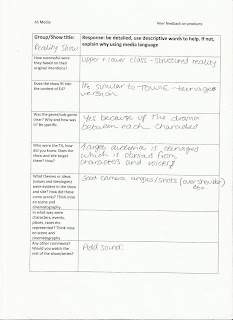 AS Media
Peer feedback on products
Group/Show title:
Reality Show
Response: be detailed, use descriptive words to help. If not,
explain why using media language
How successful were
they based on their
original intentions?
upper + lower class - structured reality
Does the show fit into
the context of E4?
Its similar to TOWIE - teenage
version
Was the genre/sub genre
clear? Why and how was
it? Be specific.
Yes because of the drama
between each character
Who were the TA, how
did you know. Does the
show and site target
them? How?
target audience is teenagers
which is obvious from
characters and
What themes or ideas,
(values and ideologies)
were evident in the show
and site? How did these
come across? Think mise
en scene and
cinematography
Good camera angles/shots (over shoulder)
In what way were
characters, events,
places, issues etc
represented? Think mise
en scene and
cinematography
Any other comments?
Would you watch the
rest of the show/series?
Add sound.